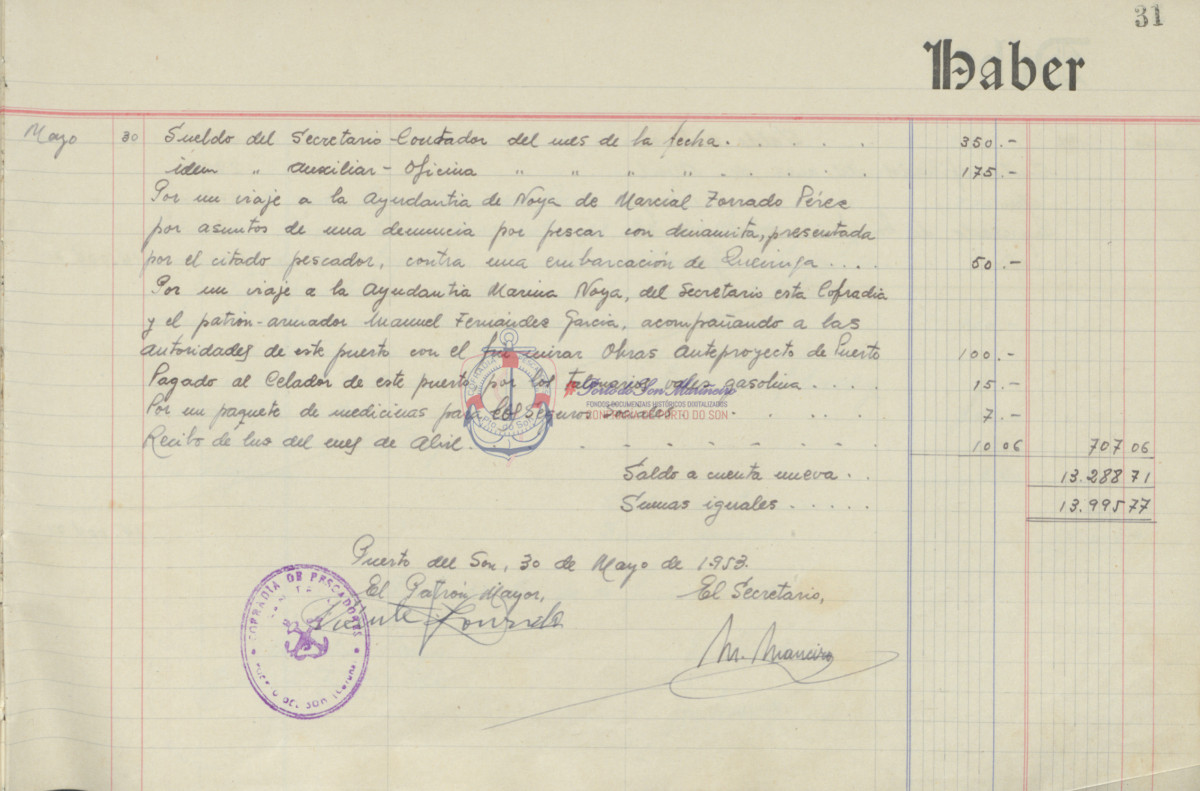 31
Haber
Mayo 30 Sueldo del Secretario-Contador del mes de la fecha. . . . . . 350.-
idem " Auxiliar - Oficina " " " " . . . . . . 175.-
Por un viaje a la Ayudantia de Noya de Marcial Torrado Pérez
por asuntos de una denuncia por pescar con dinamita, presentada
por el citado pescador, contra una embarcación de Queiruga . . . . 50.-
Por un viaje a la Ayudantia Marina Noya, del Secretario esta Cofradia
y el patrón-armador Manuel Fernández Garcia, acompañando a las
autoridades de este puerto con el mirar Obras Anteproyecto de Puerto 100.-
Pagado al Celador de este puerto por los talonarios vales gasolina . . . . 15.-
Por un paquete de medicinas para los Seguros Sociales . . . . . 7.-
Recibo de luz del mes de Abril. . . . . . . . . . 10 06 707 06
Saldo a cuenta nueva . . 13.288 71
Sumas iguales . . . . . 13.995 77
Puerto del Son, 30 de Mayo de 1.953.
El Patrón Mayor, El Secretario,
Vicente
M. Maneiro
COFRADIA DE PESCADORES
PUERTO DEL SON (CORUÑA)
COFRADÍA
Pto. do Son
Porto do Son Mariñeiro
FONDOS DOCUMENTAIS HISTÓRICOS DIGITALIZADOS
CONFRARÍA DE PORTO DO SON